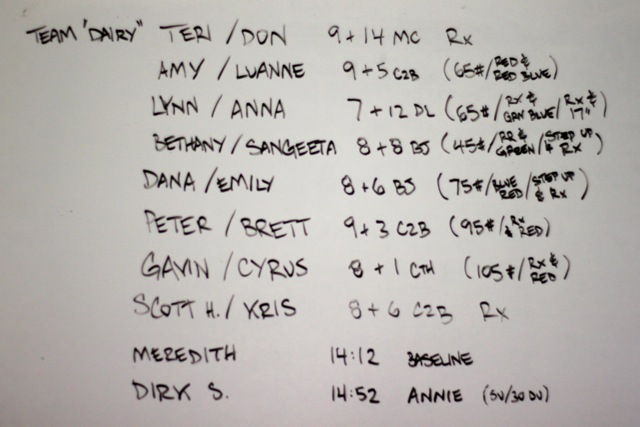 TEAM "DAIRY" TERI / DON 9 + 14 MC Rx
AMY / LUANNE 9 + 5 C2B (65#/RED & RED BLUE)
LYNN / ANNA 7 + 12 DL (65#/RX & GRN BLUE/RX & 17")
BETHANY / SANGEETA 8 + 8 BJ (45#/RR & GREEN/STEP UP & RX)
DANA / EMILY 8 + 6 BJ (75#/BLUE RED/STEP UP & RX)
PETER / BRETT 9 + 3 C2B (95#/RX & RED)
GAVIN / CYRUS 8 + 1 CTH (105#/RX & RED)
SCOTT H. / KRIS 8 + 6 C2B Rx
MEREDITH 14:12 BASELINE
DIRK S. 14:52 ANNIE (SU/30 DU)